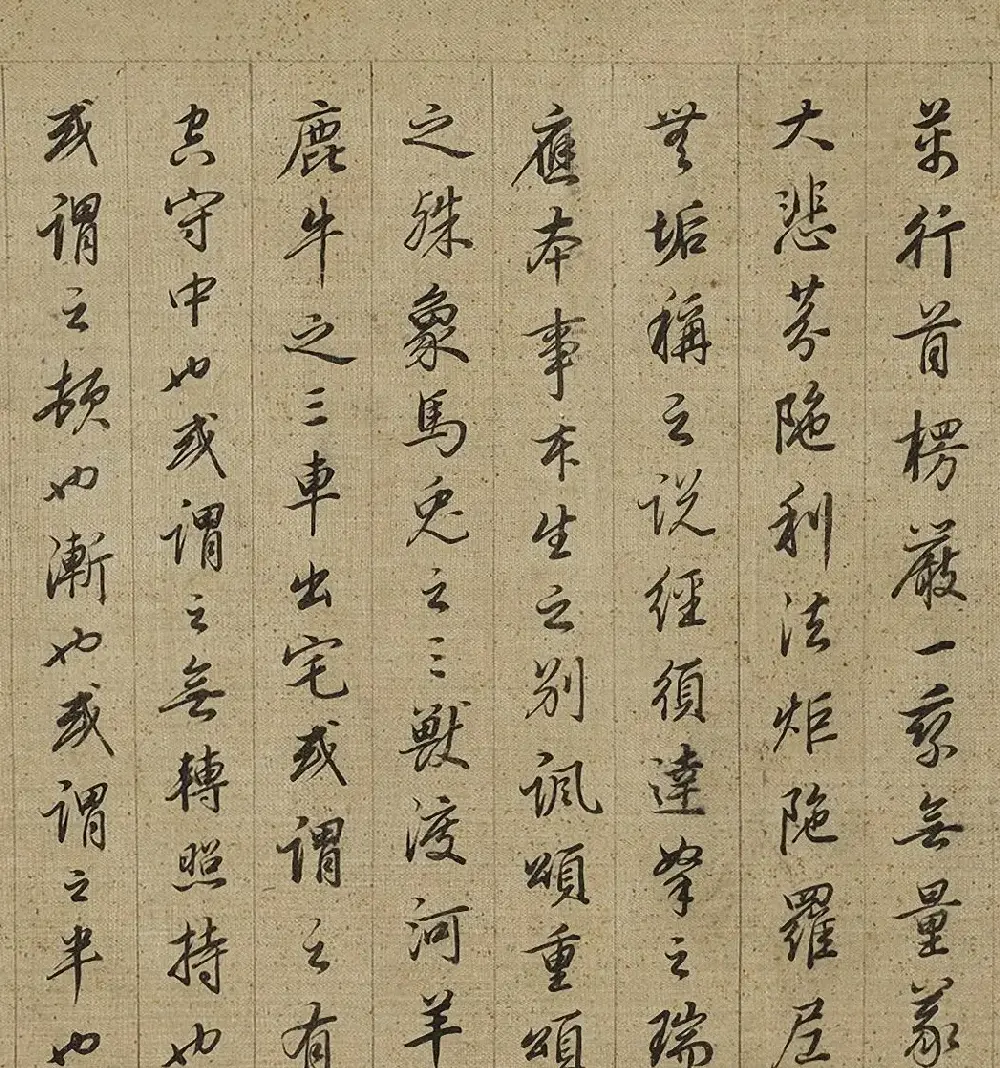 萬行首楞嚴一乘無量義
大悲芬陁利法炬陁羅尼
無垢稱之説經須達拏之瑞
應本事本生之别諷頌重頌
之殊象馬兔之三獸渡河羊
鹿牛之三車出宅或謂之有
空守中也或謂之無轉照持也
或謂之頓也漸也或謂之半也